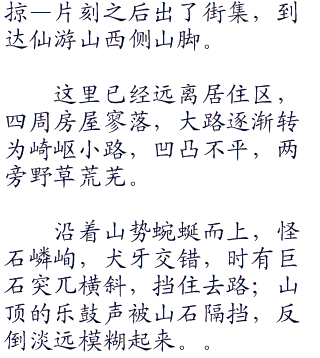 掠—片刻之后出了街集，到
达仙游山西侧山脚。
这里已经远离居住区，
四周房屋寥落，大路逐渐转
为崎岖小路，凹凸不平，两
旁野草荒芜。
沿着山势蜿蜒而上，怪
石嶙峋，犬牙交错，时有巨
石突兀横斜，挡住去路；山
顶的乐鼓声被山石隔挡，反
倒淡远模糊起来。。